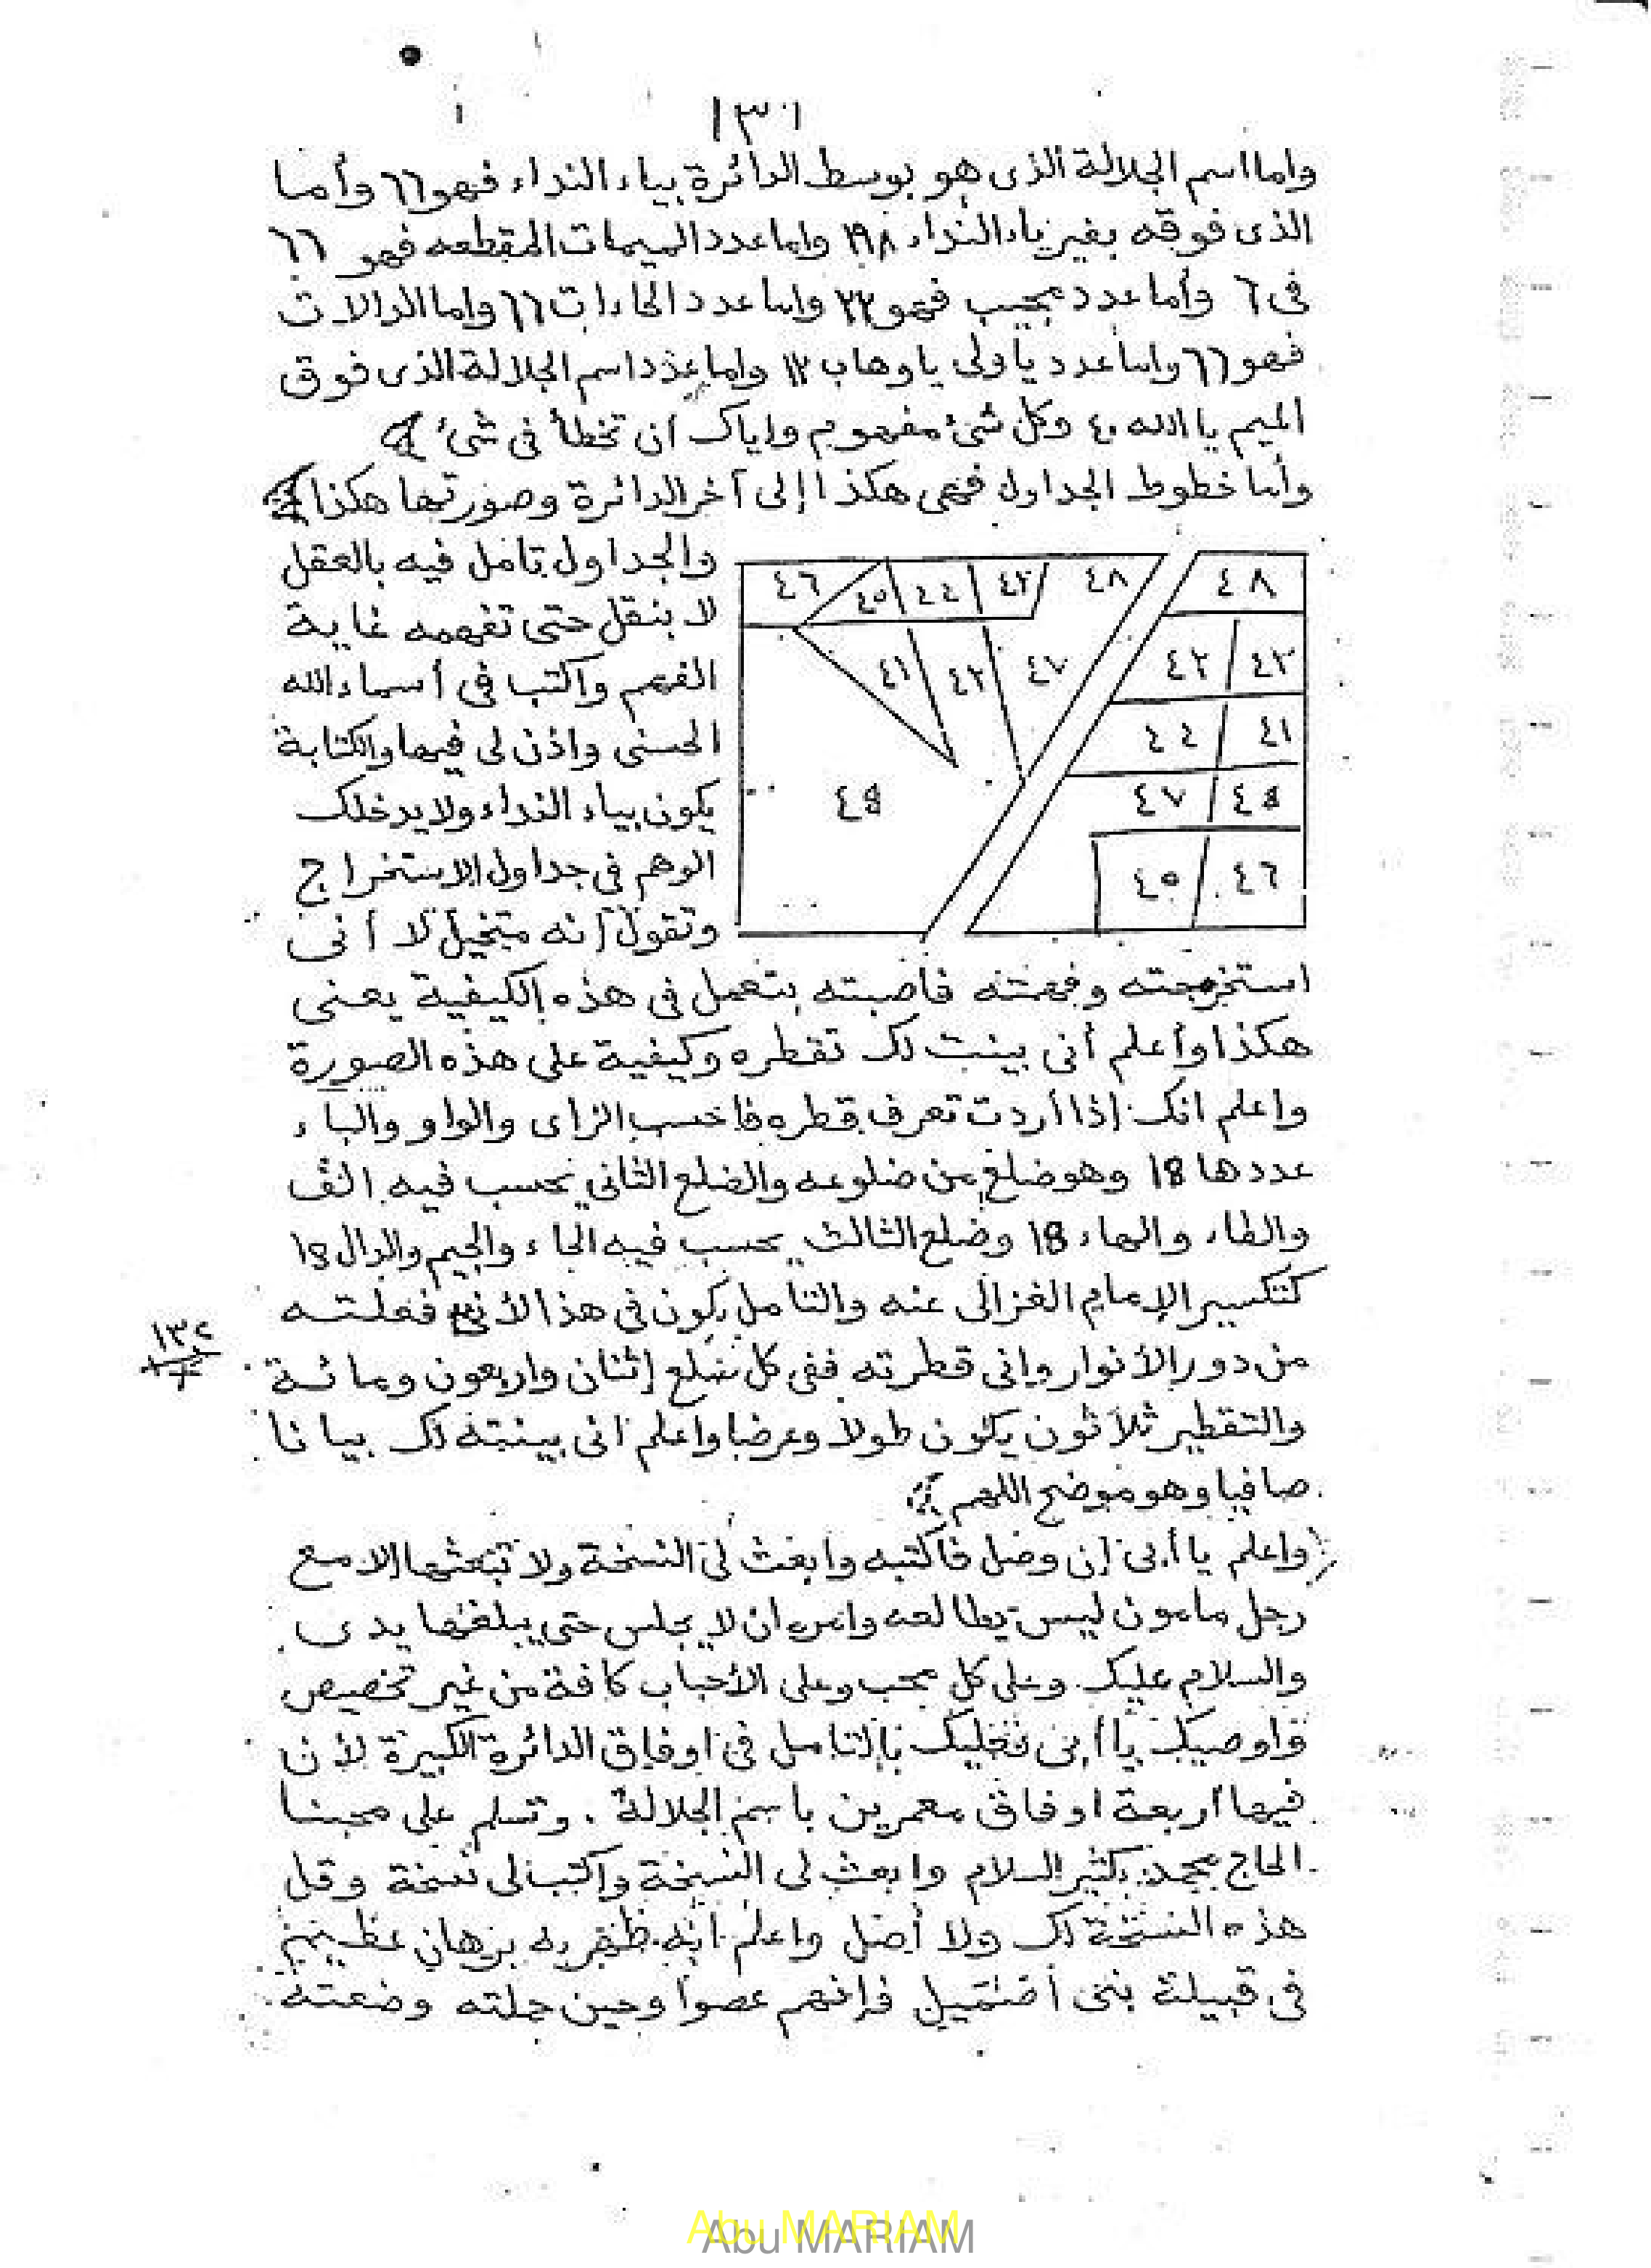 ١٣١
واما اسم الجلالة الذى هو بوسط الدائرة بياء النداء فهو ٦٦ وأما
الذى فوقه بغير ياء النداء ١٩٨ واما عدد الميمات المقطعه فهو ٦٦
فى ٦ وأما عدد مجيب فهو ٢٢ واما عدد الحاءات ٦٦ واما الدالات
فهو ٦٦ واما عدد يا ولى يا وهاب ١٢ واما عدد اسم الجلالة الذى فوق
الميم يا الله ٤٠ وكل شئ مفهوم واياك أن تخطأ فى شئ
وأما خطوط الجداول فهى هكذا إلى آخر الدائرة وصورتها هكذا
٤٦ ٤٥ ٤٤ ٤٢ ٤٨ ٤٨
٤١ ٤٢ ٤٧ ٤٢ ٤٣
٤٤ ٤١
٤٧
٤٥ ٤٦
والجداول تامل فيه بالعقل
لا بنقل حتى تفهمه غاية
الفهم واكتب فى أسماء الله
الحسنى واذن لى فيها والكتابة
يكون بياء النداء ولا يدخلك
الوهم فى جداول الاستخراج
وتقول إنه متخيل لا أنى
استخرجته وفهمته فاصبته بتعمل فى هذه الكيفية يعنى
هكذا وأعلم أنى بينت لك تقطره وكيفية على هذه الصورة
واعلم انك إذا أردت تعرف قطره فاحسب الزاى والواو والباء
عددها 18 وهو ضلع من ضلوعه والضلع الثانى يحسب فيه الف
والطاء والهاء 18 وضلع الثالث يحسب فيه الحاء والجيم والدال
كتكسير الإمام الغزالى عنه والتامل يكون فى هذا فعلته
من دور الأنوار وإنى قطرته ففى كل ضلع إثنان واربعون ومائة
١٣٢
والتقطير ثلاثون يكون طولا وعرضا واعلم انى بينته لك بيانا
صافيا وهو موضح اللهم
واعلم يا أبى إن وصل فاكتبه وابعث لى النسخة ولا تبعثها إلا مع
رجل مامون ليس يطالعه وامره ان لا يجلس حتى يبلغها يدى
والسلام عليك وعلى كل محب وعلى الأحباب كافة من غير تخصيص
واوصيك يا أبى فعليك بالتامل فى اوفاق الدائرة الكبيرة لأن
فيها أربعة اوفاق معمرين باسم الجلالة . وتسلم على محبنا
الحاج محمد بكثير السلام وابعث لى النسخة واكتب لى نسخة وقل
هذه النسخة لك ولا أصل واعلم انه ظهر به برهان عظيم
فى قبيلة بنى فإنهم عصوا وحين حملته وضعته
Abu MARIAM
Abu MARIAM